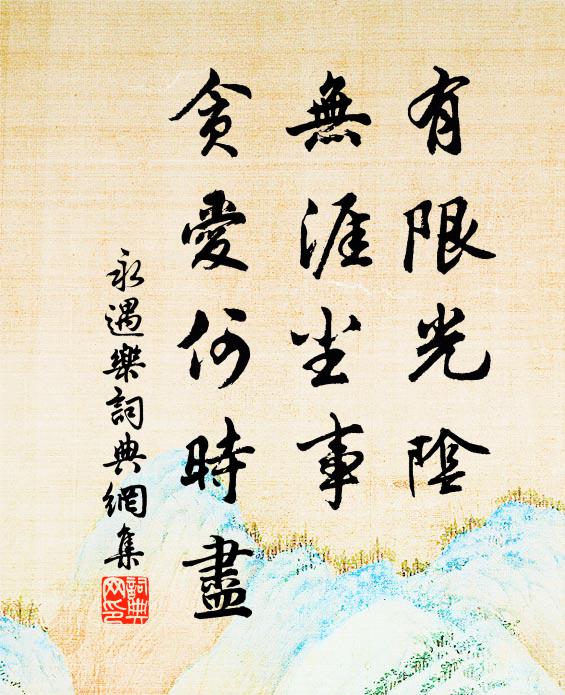 有限光陰
無涯尘事
貪愛何時盡
永遇樂詞典網集
詞典
网印